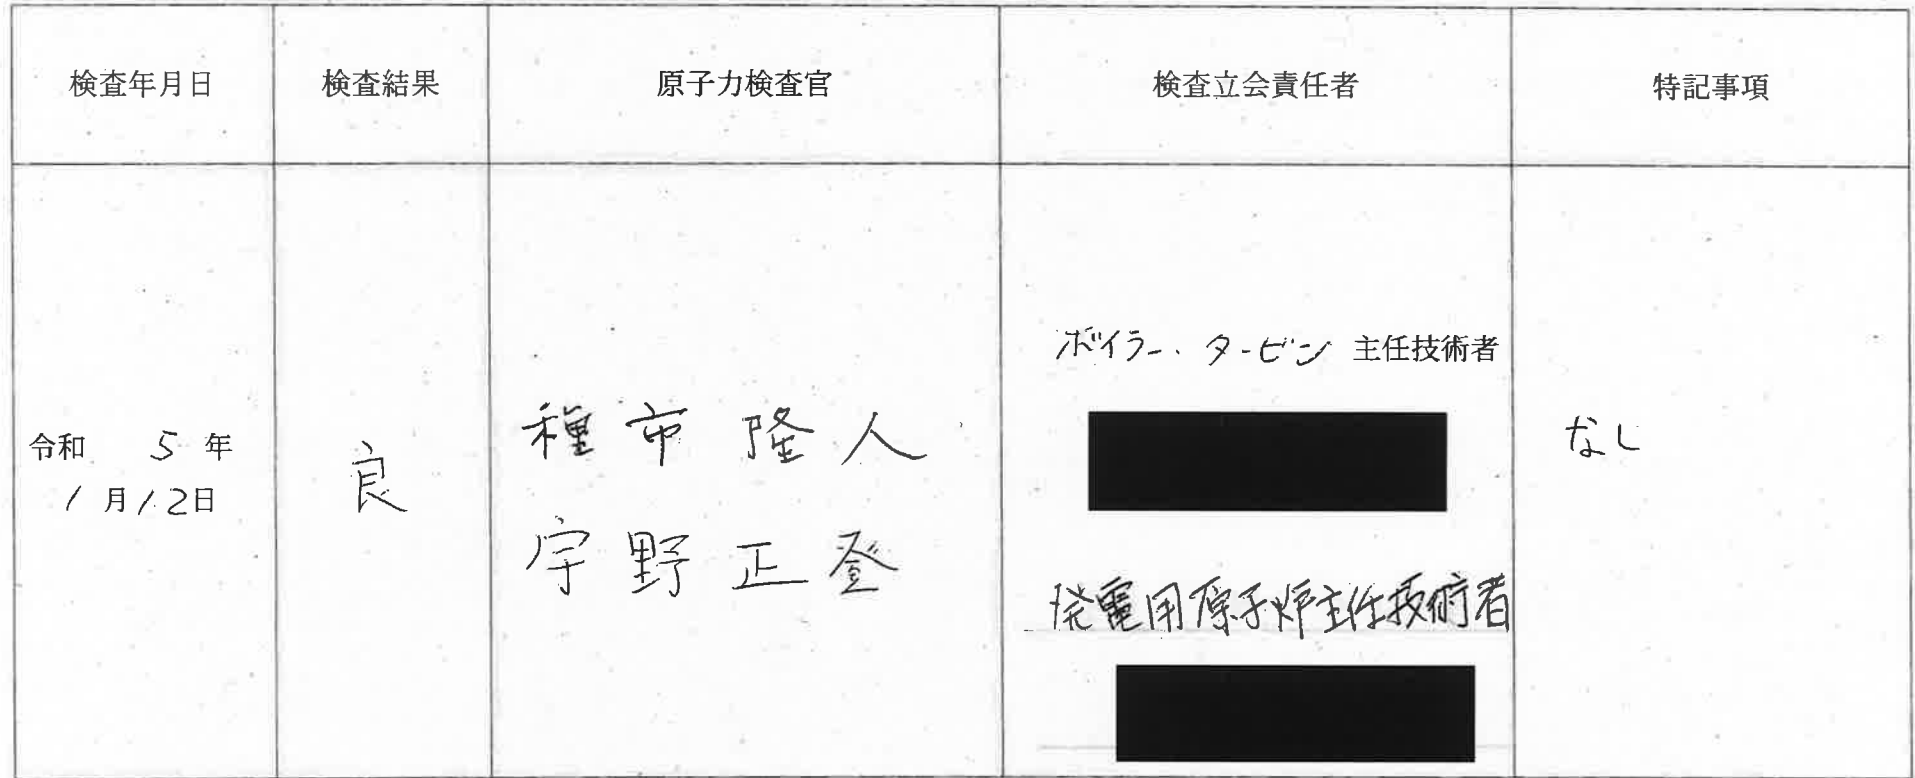 検査年月日
検査結果
原子力検査官
検査立会責任者
特記事項
令和 5 年
1 月 12日
良
種市隆人
宇野正登
ボイラー・タービン 主任技術者
発電用原子炉主任技術者
なし